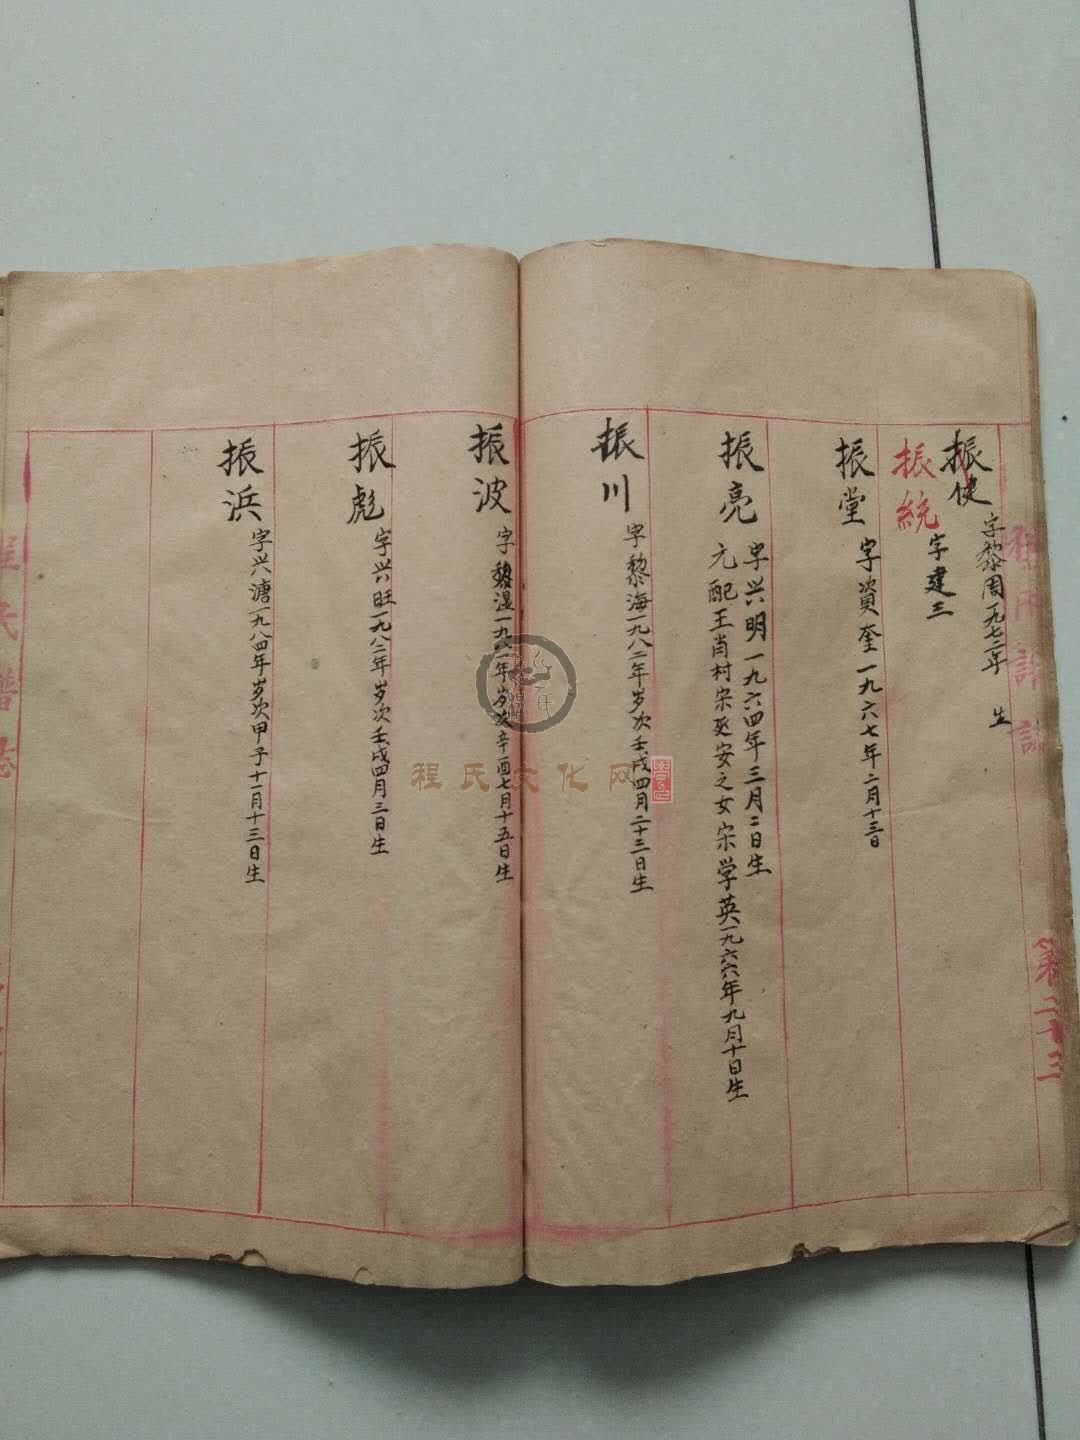 振健 字黎周一九七二年 生
振統 字建三
振堂 字資奎一九六七年二月十三日
振亮 字兴明一九六四年三月二日生
元配王肖村宋延安之女宋学英一九六六年九月十日生
振川 字黎海一九八二年岁次壬戌四月二十三日生
振波 字黎湿一九八一年岁次辛酉七月十五日生
振彪 字兴旺一九八二年岁次壬戌四月三日生
振浜 字兴溏一九八四年岁次甲子十一月十三日生
第二十三
程氏譜志
程氏文化网